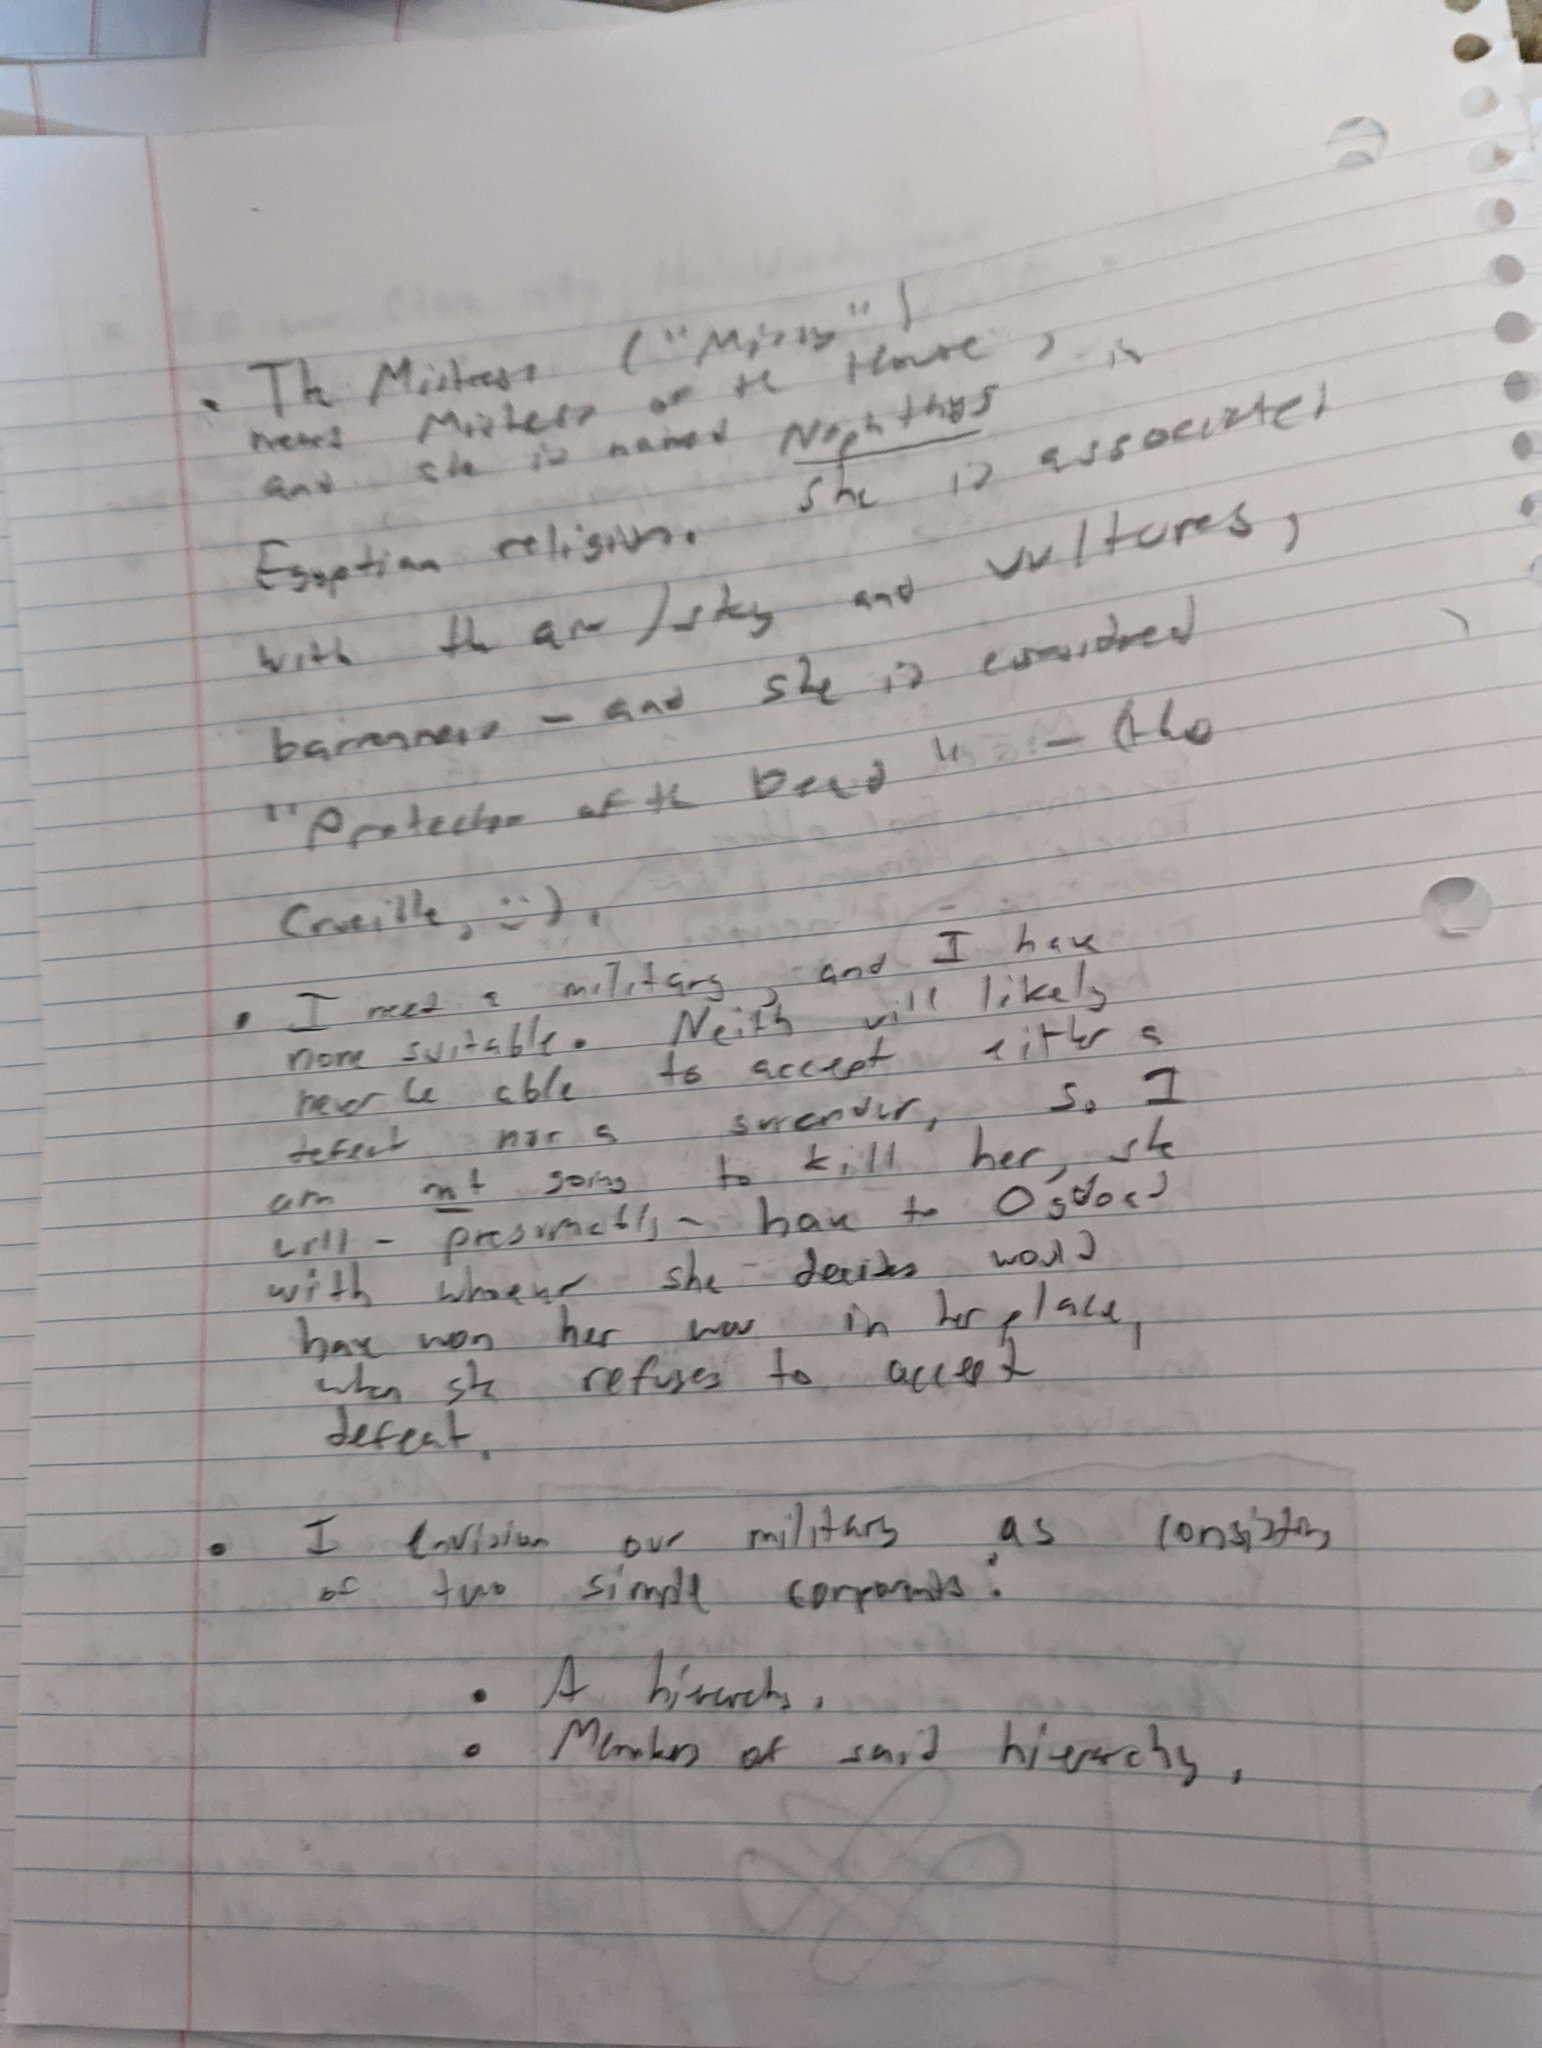 • The Mistress ("Missy")
means Mistress of the House, in
and she is named Nephthys
Egyptian religion. She is associated
with the air/sky and vultures,
barrenness – and she is considered
"Protector of the Dead" – (the
:)).
• I need a military, and I have
none suitable. Neith will likely
never be able to accept either a
defeat nor a surrender, so I
am not going to kill her, she
will – presumably – have to Ogdoad
with whoever she decides would
have won her war in her place,
when she refuses to accept
defeat.
• I envision our military as consisting
of two simple components:
• A hierarchy.
• Members of said hierarchy.